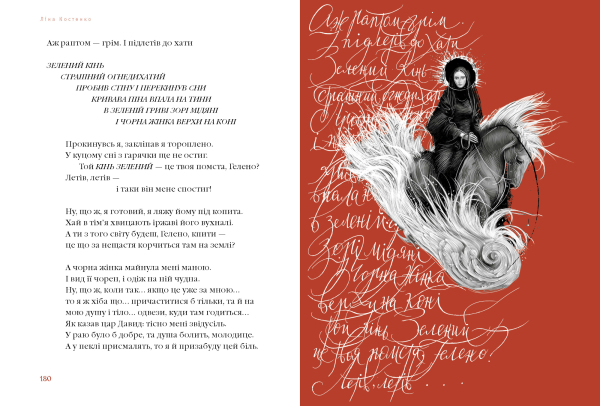 Ліна Костенко
Аж раптом — грім. І підлетів до хати
ЗЕЛЕНИЙ КІНЬ
СТРАШНИЙ ОГНЕДИХАТИЙ
ПРОБИВ СТІНУ І ПЕРЕКИНУВ СНИ
КРИВАВА ПІНА ВПАЛА НА ТИНИ
В ЗЕЛЕНІЙ ГРИВІ ЗОРІ МІДЯНІ
І ЧОРНА ЖІНКА ВЕРХИ НА КОНІ
Прокинувсь я, закліпав я торопл́ено.
У куцому сні з гарячки ще не остиг.
Той КІНЬ ЗЕЛЕНИЙ — це твоя помста, Гелено?
Летів, летів —
і таки він мене спостиг!
Ну, що ж, я готовий, я ляжу йому під копита.
Хай в тім'я хвицають іржаві його вухналі.
А ти з того світу будеш, Гелено, кпити —
це що за нещастя корчиться там на землі?
А чорна жінка майнула мені маною.
І вид її чорен, і одіж на ній чудна.
Ну, що ж, коли так... якщо це уже за мною...
то я ж хіба що... причаститися б тільки, та й на
мою душу і тіло... одвези, куди там годиться...
Як казав цар Давид: тісно мені звідусіль.
У раю було б добре, та душа болить, молодице.
А у пеклі присмалять, то я й призабуду цей біль.
180
Аж раптом грім...
І підлетів до хати
Зелений кінь
Страшний огнедихат
впала на
в зеленій
Зорі мідяні
І Чорна Жінка
верхи на коні
Той кінь Зелений
це твоя помста, Гелено?
Летів, летів . . . .